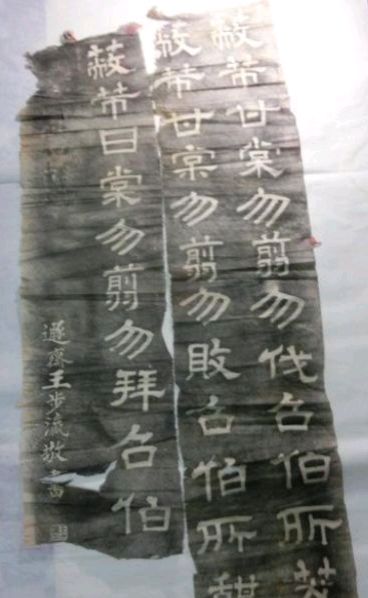 蔽芾甘棠勿剪勿伐召伯所茇
蔽芾甘棠勿剪勿敗召伯所憩
蔽芾甘棠勿剪勿拜召伯
遜齋王步瀛敬書